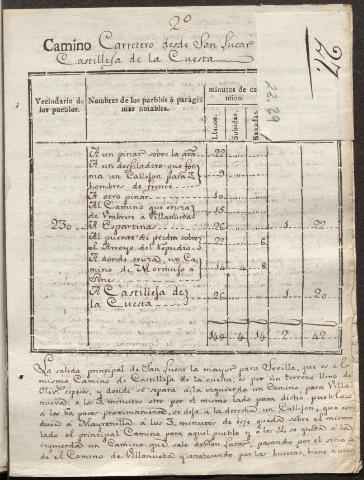 2º
27.
Camino Carretero desde San Lucar
Castilleja de la Cuesta
22:29
Vecindario de los pueblos.
Nombres de los pueblos ó parages mas notables.
minutos de camino.
Llanos. Subidas. Baxadas.
A un pinar sobre la dra 22
A un desfiladero que forma un Callejon para 3 hombres de frente 9
A otro pinar 10
Al Camino que cruza de Umbrete a Villanueva 15
230 A Espartina 26 1 22
Al puente de piedra sobre el Arroyo del Repudio 22 6
A donde cruza un Camino de Bormujo a Gine 14 4 8
A Castilleja de la Cuesta 26 1 20
144 4 14 2 42
La salida principal de San Lucar la mayor para Sevilla, que es el
mismo Camino de Castilleja de la cuesta, es por un terreno llano de
Olivr espeso, y donde se separa a la izquierda un Camino para Villa
nueva: a los 3 minutos otro por el mismo lado para dicho pueblo:
a los 60 pasos proximamente, se deja a la derecha un Callejon, que con
duce à Mayrenilla: à los 3 minutos de este queda sobre el mismo
lado el principal Camino para aquel pueblo y à los 14 se queda à la
izquierda un Camino que sale de San Lucar, pasando por el sitio
de el Camino de Villanueva y atravesando por las huertas, bien a